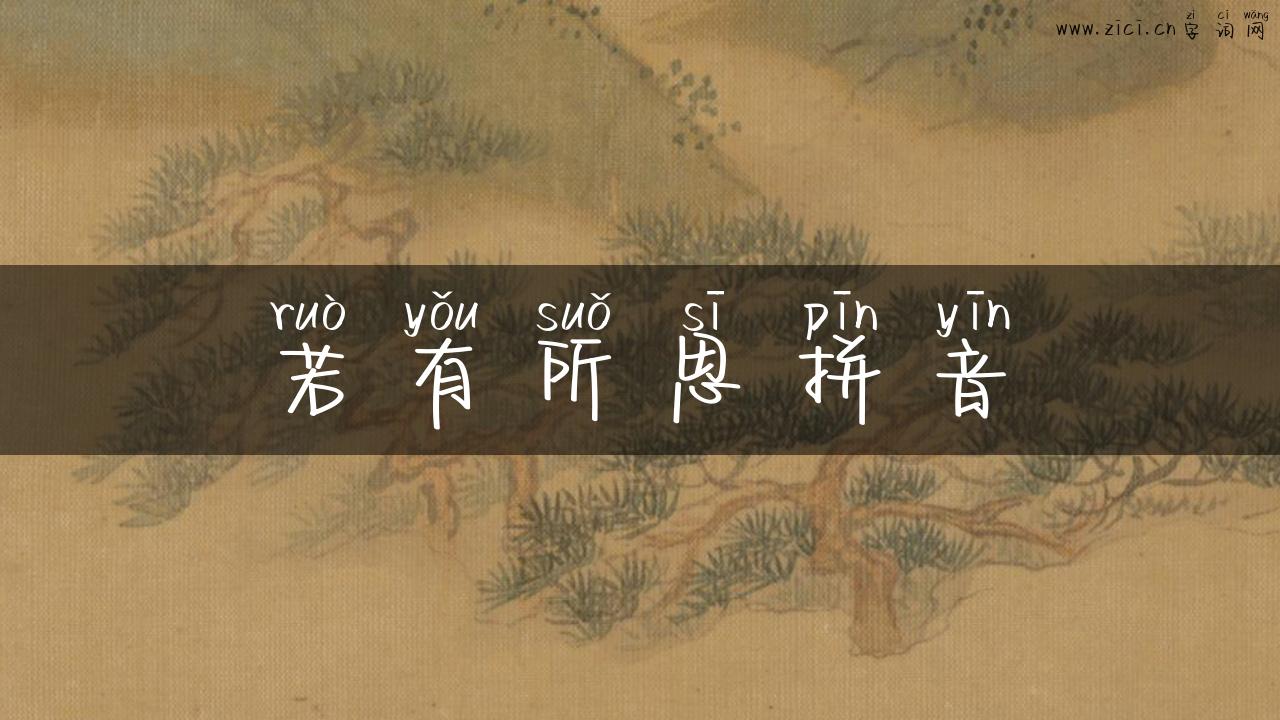 zì cí wǎng
www.zici.cn 字词网
ruò yǒu suǒ sī pīn yīn
若有所思拼音